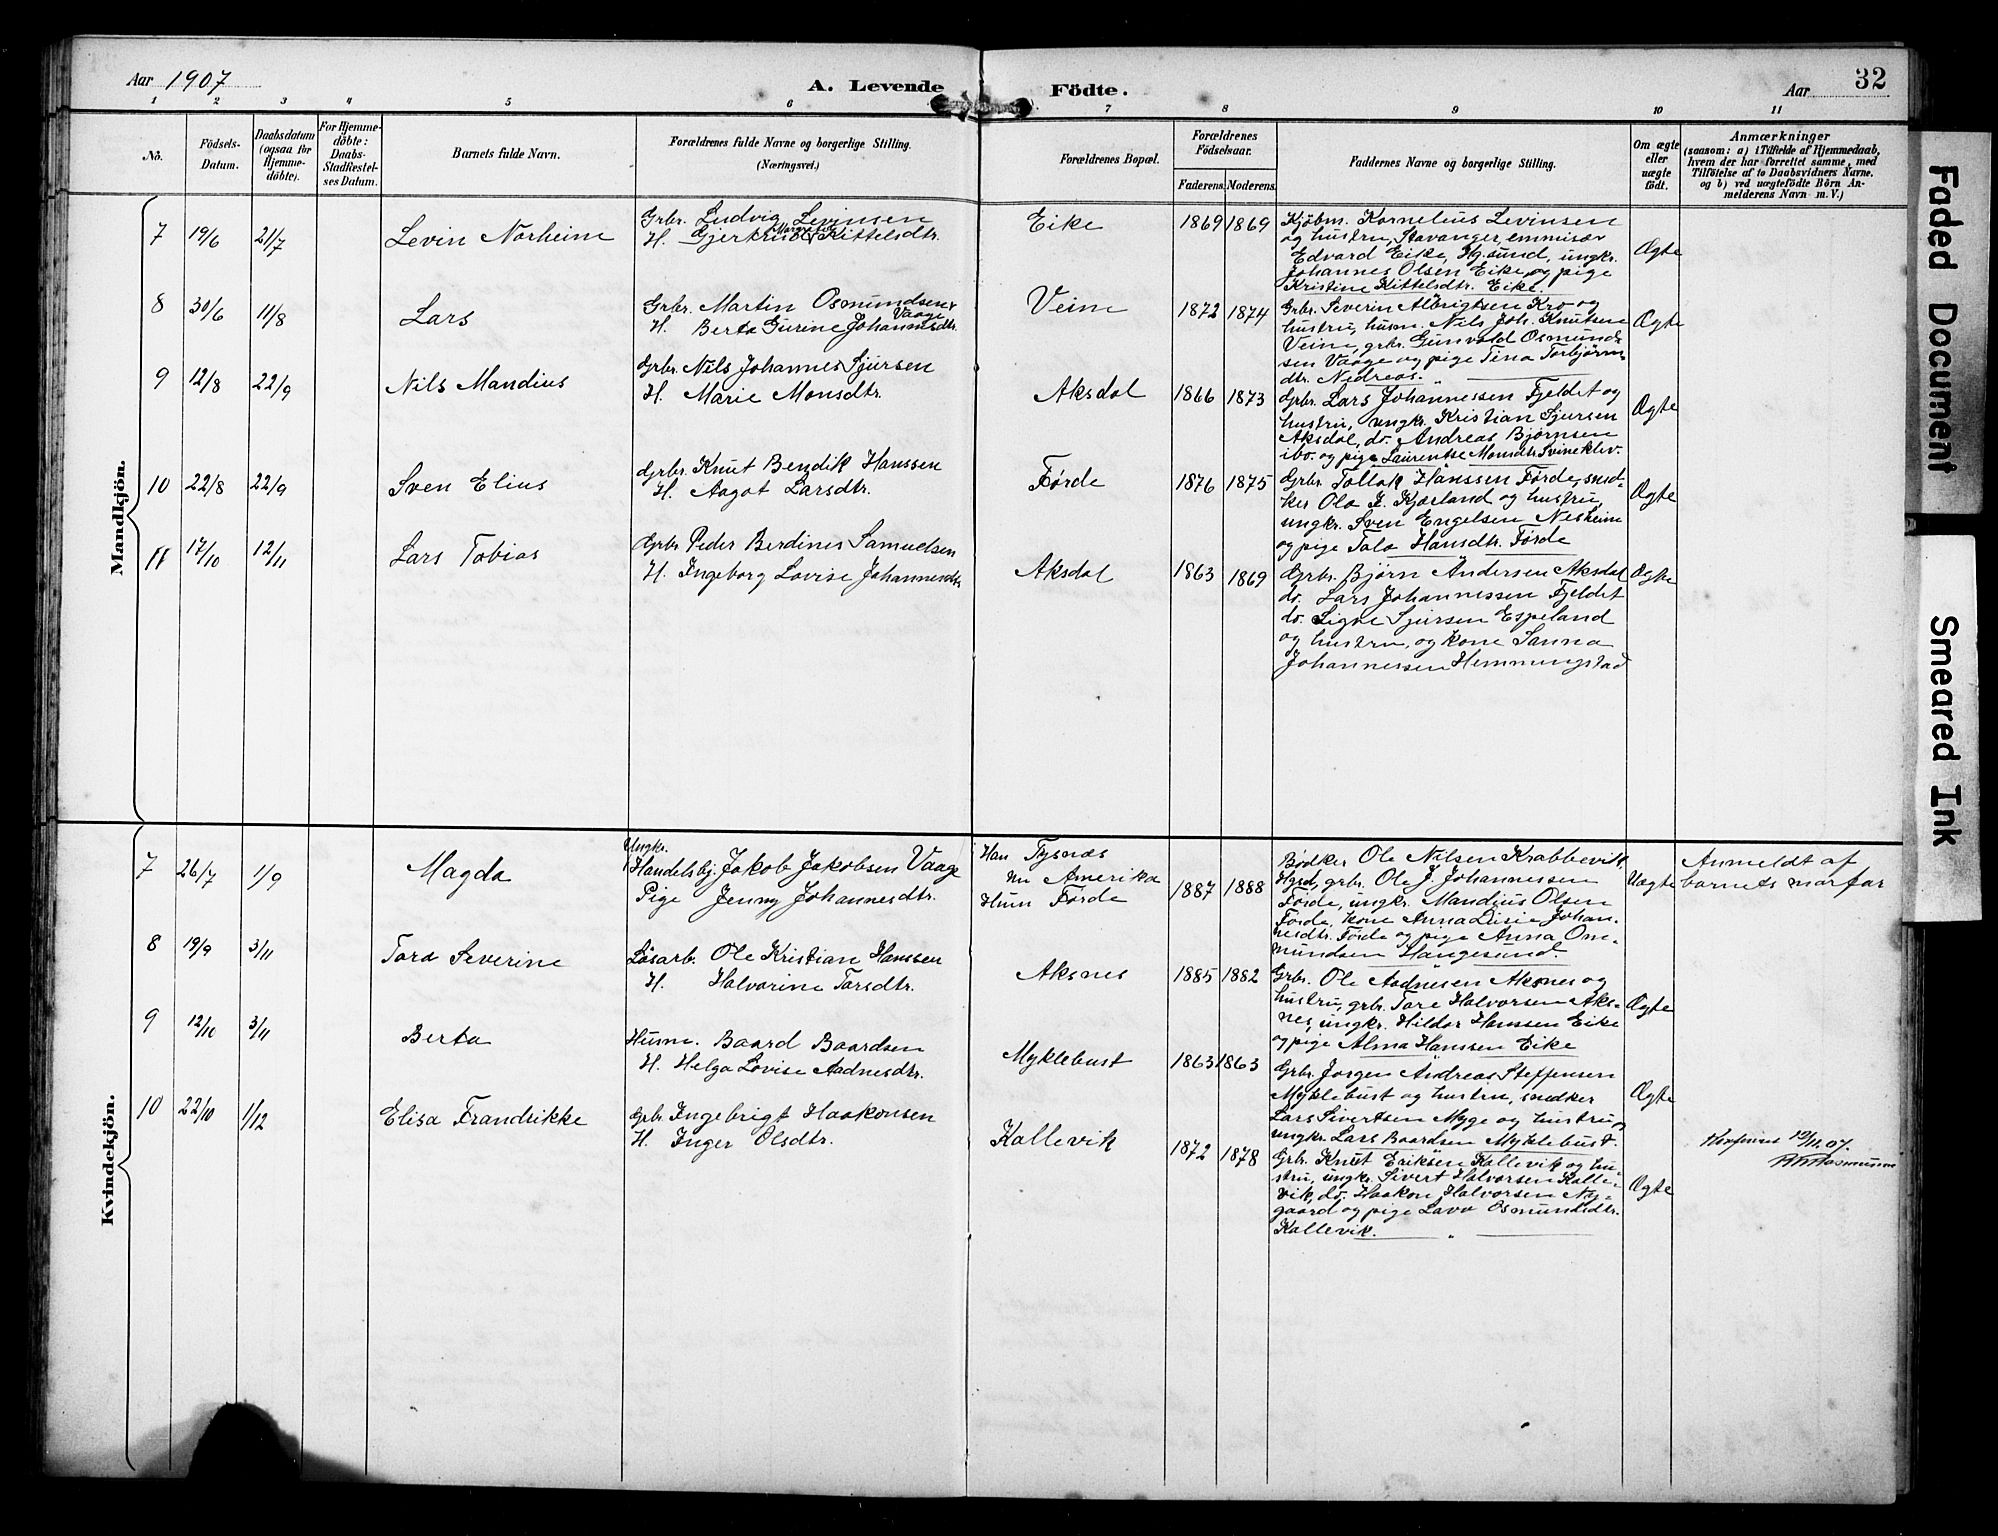 Aar 1907
A. Levende Födte.
Aar
32
1 2 3 4 5 6 7 8 9 10 11
No.
Födsels-
Datum.
Daabsdatum
(ogsaa for
Hjemme-
döbte).
For Hjemme-
döbte:
Daabs-
Stadfæstel-
ses Datum.
Barnets fulde Navn.
Forældrenes fulde Navne og borgerlige Stilling.
(Næringsvei.)
Forældrenes Bopæl.
Forældrenes
Födselsaar.
Faderens. Moderens.
Faddernes Navne og borgerlige Stilling.
Om ægte
eller
uægte
födt.
Anmærkninger
(saasom: a) i Tilfælde af Hjemmedaab,
hvem der har forrettet samme, med
Tilföielse af to Daabsvidners Navne.
og b) ved uægtefödte Börn An-
melderens Navn m. V.)
Mandkjön.
7 19/6 21/7
Levin Norheim
Grbr. Ludvig Levinsen
H. Gjertrud Kittelsdtr.
Eike
1869 1869
Kjøbm. Kornelius Levinsen
og hustru, Stavanger, emmisær
Edvard Eike, Hg.sund, ungkr.
Johannes Olsen Eike, og pige
Kristine Kittelsdtr. Eike.
Ægte
8 30/6 11/8
Lars
Grbr. Martin Osmundsen
Vaage
H. Berta Gurine Johannesdtr.
Veim
1872 1874
Grbr. Severin Albrigtsen Kro og
hustru, husm. Nils Joh. Knutsen
Veim, grbr. Gunvald Osmund-
sen Vaage og pige Tina Torbjørns-
dtr. Nedreas.
Ægte
9 12/8 22/9
Nils Mandius
Grbr. Nils Johannes Sjursen
H. Marie Monsdtr.
Aksdal
1866 1873
Grbr. Lars Johannessen Fjeldet og
hustru, ungkr. Kristian Sjursen
Aksdal, do. Andreas Bjørnsen
ibo. og pige Laurentse Monsdtr. Svineklev.
Ægte
10 22/8 22/9
Sven Elius
Grbr. Knut Bendik Hanssen
H. Aagot Larsdtr.
Førde
1876 1875
Grbr. Tollak Hanssen Førde, sned-
ker Ola J. Kjærland og hustru,
ungkr. Sven Engelsen Nesheim
og pige Tala Hansdtr. Førde
Ægte
11 17/10 12/11
Lars Tobias
Grbr. Peder Berdines Samuelsen
H. Ingeborg Lovise Johannesdtr
Aksdal
1863 1869
Grbr. Bjørn Andersen Aksdal
do. Lars Johannessen Fjeldet
do. Sigve Sjursen Espeland
og hustru, og kone Sanna
Johannessen Hemmingstad
Ægte
Kvindekjön.
7 26/7 1/9
Magda
Ungkr.
Handelsbj. Jakob Jakobsen Vaage
Pige Jenny Johannesdtr.
Han Tysnæs
nu Amerika
Hun Førde
1887 1888
Bødker Ole Nilsen Krabbevik,
Hgsd, grbr. Ole J. Johannessen
Førde, ungkr. Mandius Olsen
Førde, kone Anna Lisie Johan-
nesdtr. Førde og pige Anna Om-
mundsen Haugesund.
Uægte
Anmeldt af
barnets morfar
8 19/9 3/11
Tora Severine
Løsarb. Ole Kristian Hanssen
H. Halvorine Torsdtr.
Aksnes
1885 1882
Grbr. Ole Aadnesen Aksnes og
hustru, grbr. Tore Halvorsen Aks-
nes, ungkr. Hildor Hanssen Eike
og pige Alma Hanssen Eike
Ægte
9 12/10 3/11
Berta
Husm. Baard Baardsen
H. Helga Lovise Aadnesdtr.
Myklebust
1863 1863
Grbr. Jørgen Andreas Steffensen
Myklebust og hustru, snedker
Lars Sivertsen Myge og hustru og
ungkr. Lars Baardsen Myklebust.
Ægte
10 22/10 1/12
Elisa Frandrikke
Grbr. Ingebrigt Haakonsen
H. Inger Olsdtr.
Kallevik
1872 1878
Grbr. Knut Eriksen Kallevik og hu-
stru, ungkr. Sivert Halvorsen Kalle-
vik, do. Haakon Halvorsen Ny-
gaard og pige Lava Osmundsdtr.
Kallevik.
Ægte
Faded Document
Smeared Ink